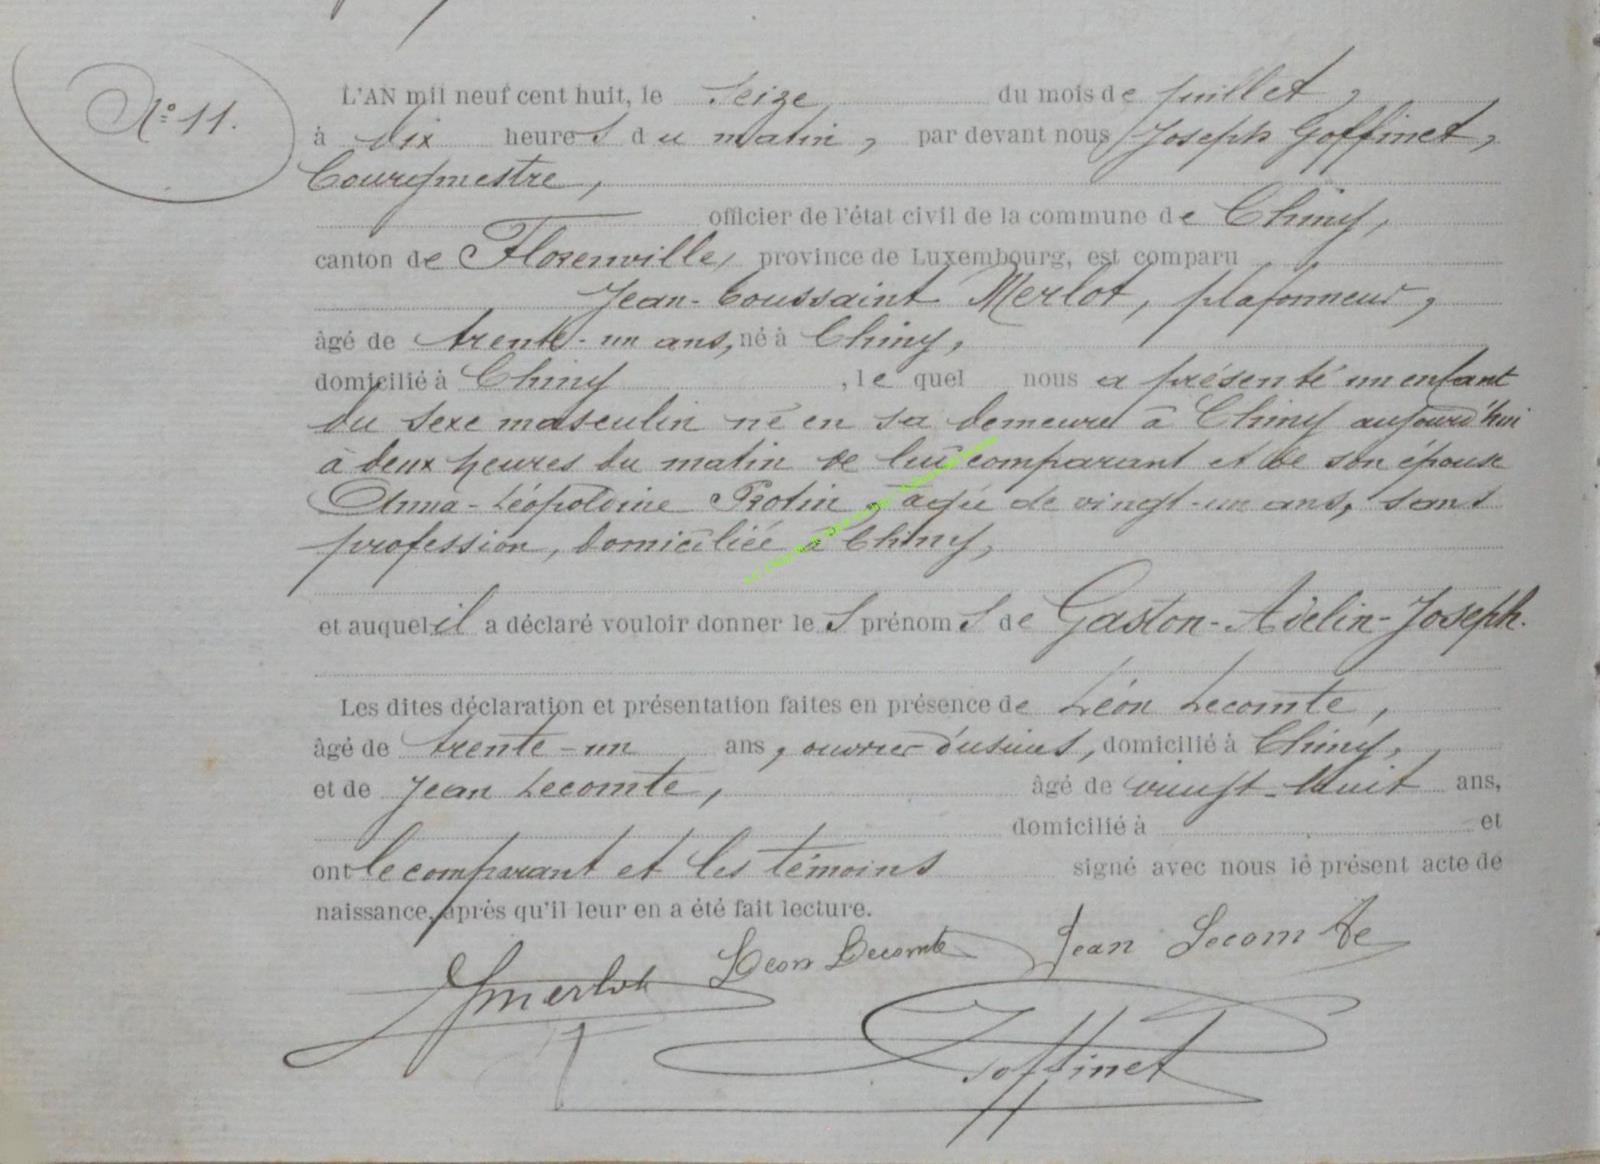 N° 11.
L'AN mil neuf cent huit, le Seize du mois de juillet,
à dix heures du matin, par devant nous Joseph Goffinet,
Bourgmestre,
officier de l'état civil de la commune de Chiny,
canton de Florenville, province de Luxembourg, est comparu
Jean-Toussaint Merlot, plafonneur,
âgé de trente-un ans, né à Chiny,
domicilié à Chiny, le quel nous a présenté un enfant
du sexe masculin né en sa demeure à Chiny aujourd'hui
à deux heures du matin de lui comparant et de son épouse
Anna-Léopoldine Rotin, agée de vingt-un ans, sans
profession, domiciliée à Chiny,
et auquel il a déclaré vouloir donner les prénoms de Gaston-Adelin-Joseph.
Les dites déclaration et présentation faites en présence de Léon Lecomte,
âgé de trente-un ans, ouvrier d'usines, domicilié à Chiny,
et de Jean Lecomte, âgé de vingt-huit ans,
domicilié à et
ont le comparant et les témoins signé avec nous le présent acte de
naissance, après qu'il leur en a été fait lecture.
JMerlot Léon Lecomte Jean Lecomte
Goffinet